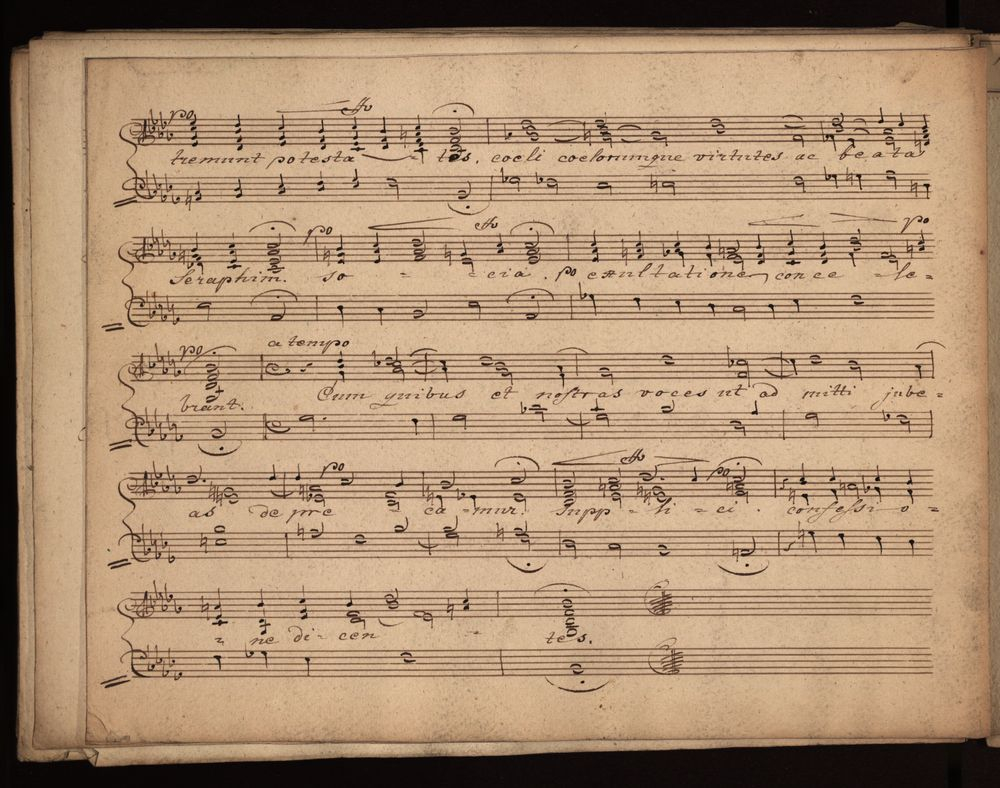 po ffo
tremunt potesta - tes. coeli coelorumque virtutes ac beata
po ffo po
Seraphim. so - - cia. po exultatione concele -
po. a tempo
brant. Cum quibus et nostras voces ut ad mitti jube -
po ffo po
as de pre ca - mur. supp - li - ci. confessi o -
- ne di - cen - tes.